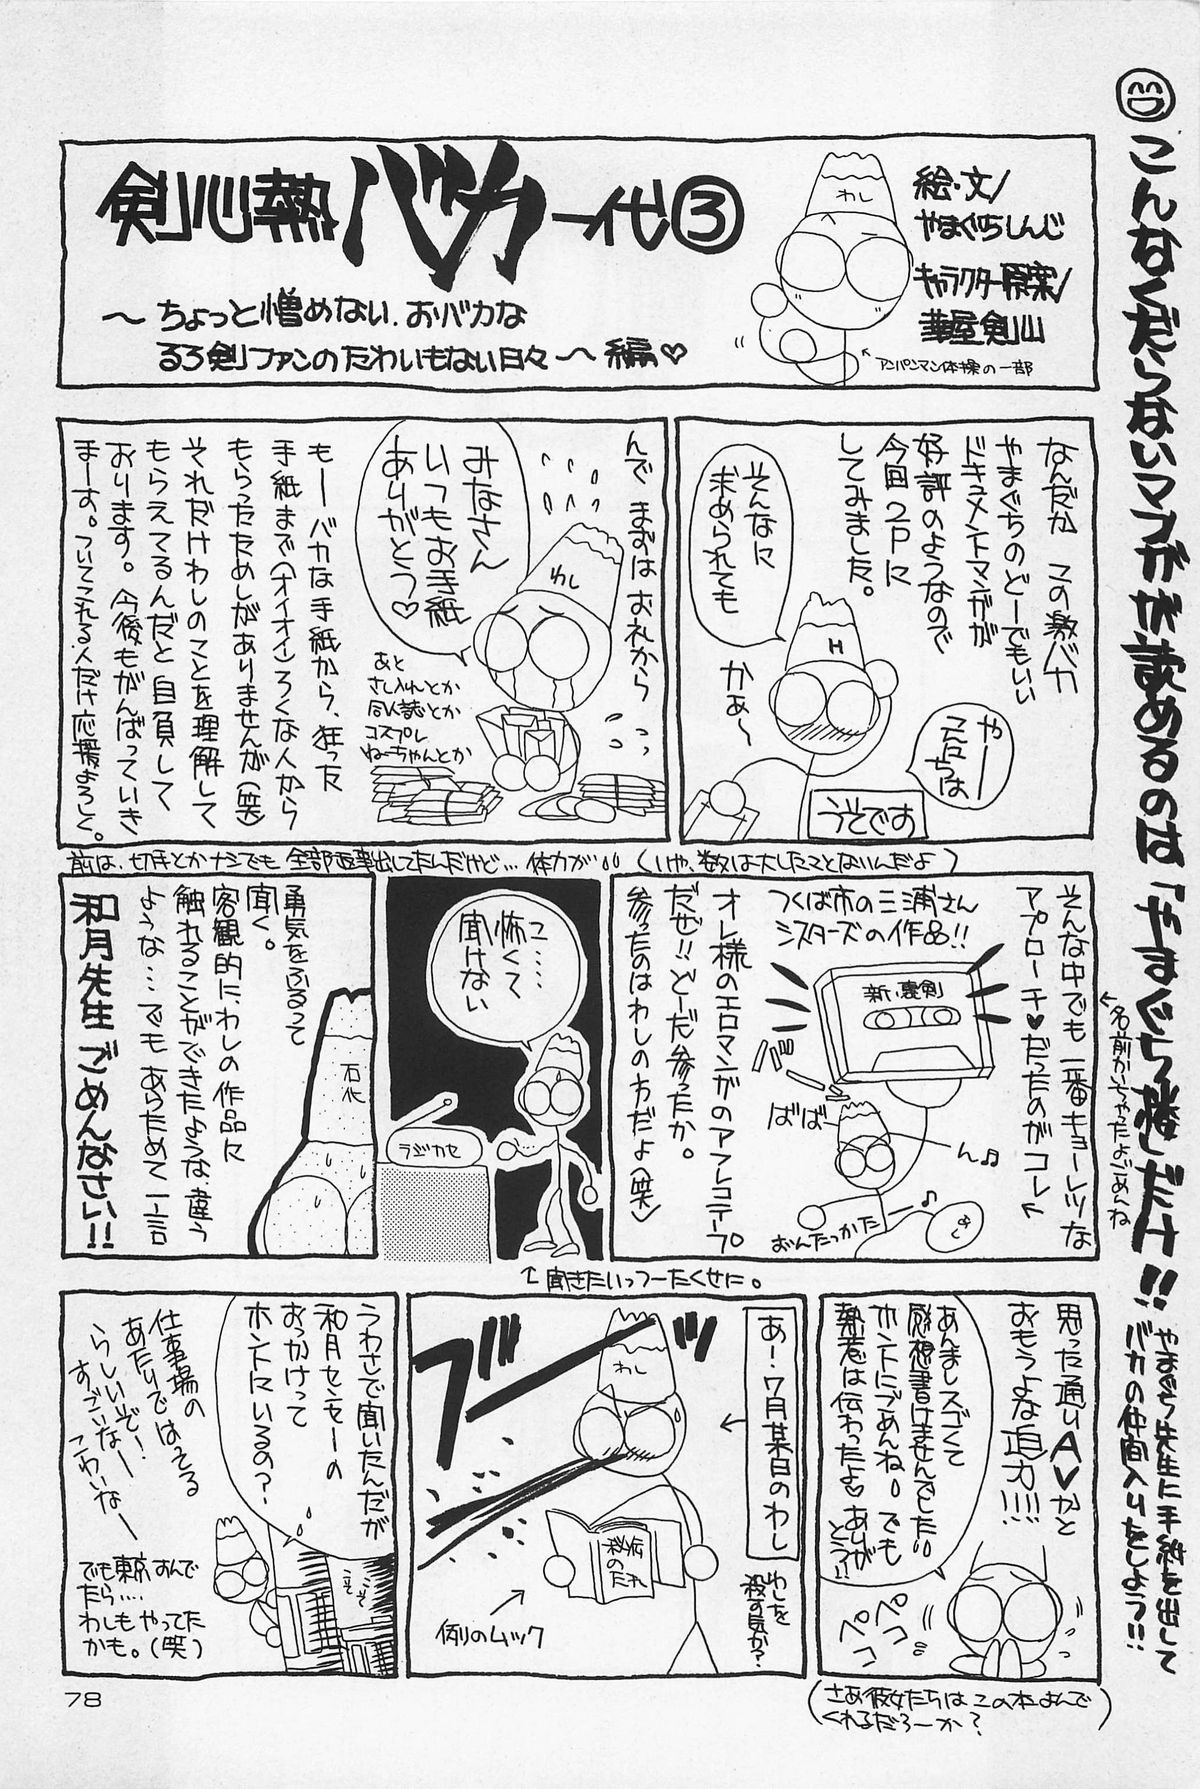 こんなくだらないマンガが読めるのは「やまぐち楼」だけ!!
やまぐち先生に手紙を出して
バカの仲間入りをしよう!!
剣心熱バカ一代③
〜ちょっと憎めない、おバカな
るろ剣ファンのたわいもない日々〜編♡
わし
絵・文/
やまぐちしんじ
キャラクター原案/
華屋剣山
アンパンマン体操の一部
なんだか この激バカ
やまぐちのどーでもいい
ドキュメントマンガが
好評のようなので
今回2Pに
してみました。
そんなに
求められても
かぁ〜
H
やー
こにちは
うそです
んで まずは お礼から
みなさん
いつもお手紙
ありがとう♡
わし
あと
さし入れとか
同人誌とか
コスプレ
ねーちゃんとか
もーバカな手紙から、狂った
手紙まで(オイオイ)ろくな人から
もらったためしがありませんが(笑)
それだけわしのことを理解して
もらえてるんだと自負して
おります。今後もがんばっていき
まーす。ついてこれる人だけ応援よろしく。
前は、切手とかナシでも全部返事出してたんだけど…体力が
(いや、数は大したことないんだよ)
そんな中でも一番キョーレツな
アプローチ♡だったのがコレ
名前かいちゃったよごめんね
つくば市の三浦さん
シスターズの作品!!
新・裏剣
バーン
ばばーん♪
おんたっかた♪
あし
オレ様のエロマンガのアフレコテープ
だぜ!!どーだ参ったか。
参ったのはわしの方だよ(笑)
こ…
怖くて
聞けない
ラジカセ
聞きたいっつーたくせに。
勇気をふるって
聞く。
客観的に、わしの作品に
触れることができたような、違う
ような…でもあらためて一言
和月先生ごめんなさい!!
石化
思った通りAVかと
おもうよな迫力!!!!
あんましスゴくて
感想書けませんでした!!
ホントにごめんね。でも
熱意は伝わったよ♡ありが
とう!?
ペコ
ペコ
(さあ彼女たちはこの本よんで
くれるだろーか?)
あー、7月某日のわし
わし
ブーッ
秘伝
のたれ
例のムック
わしを
殺す気か?
うわさで聞いたんだが
和月センセーの
おっかけって
ホントにいるの?
こそこそ
仕事場の
あたりではってる
らしいいぞ!
すごいなー
こわいなー
でも東京すんで
たら…
わしもやってた
かも。(笑)
78